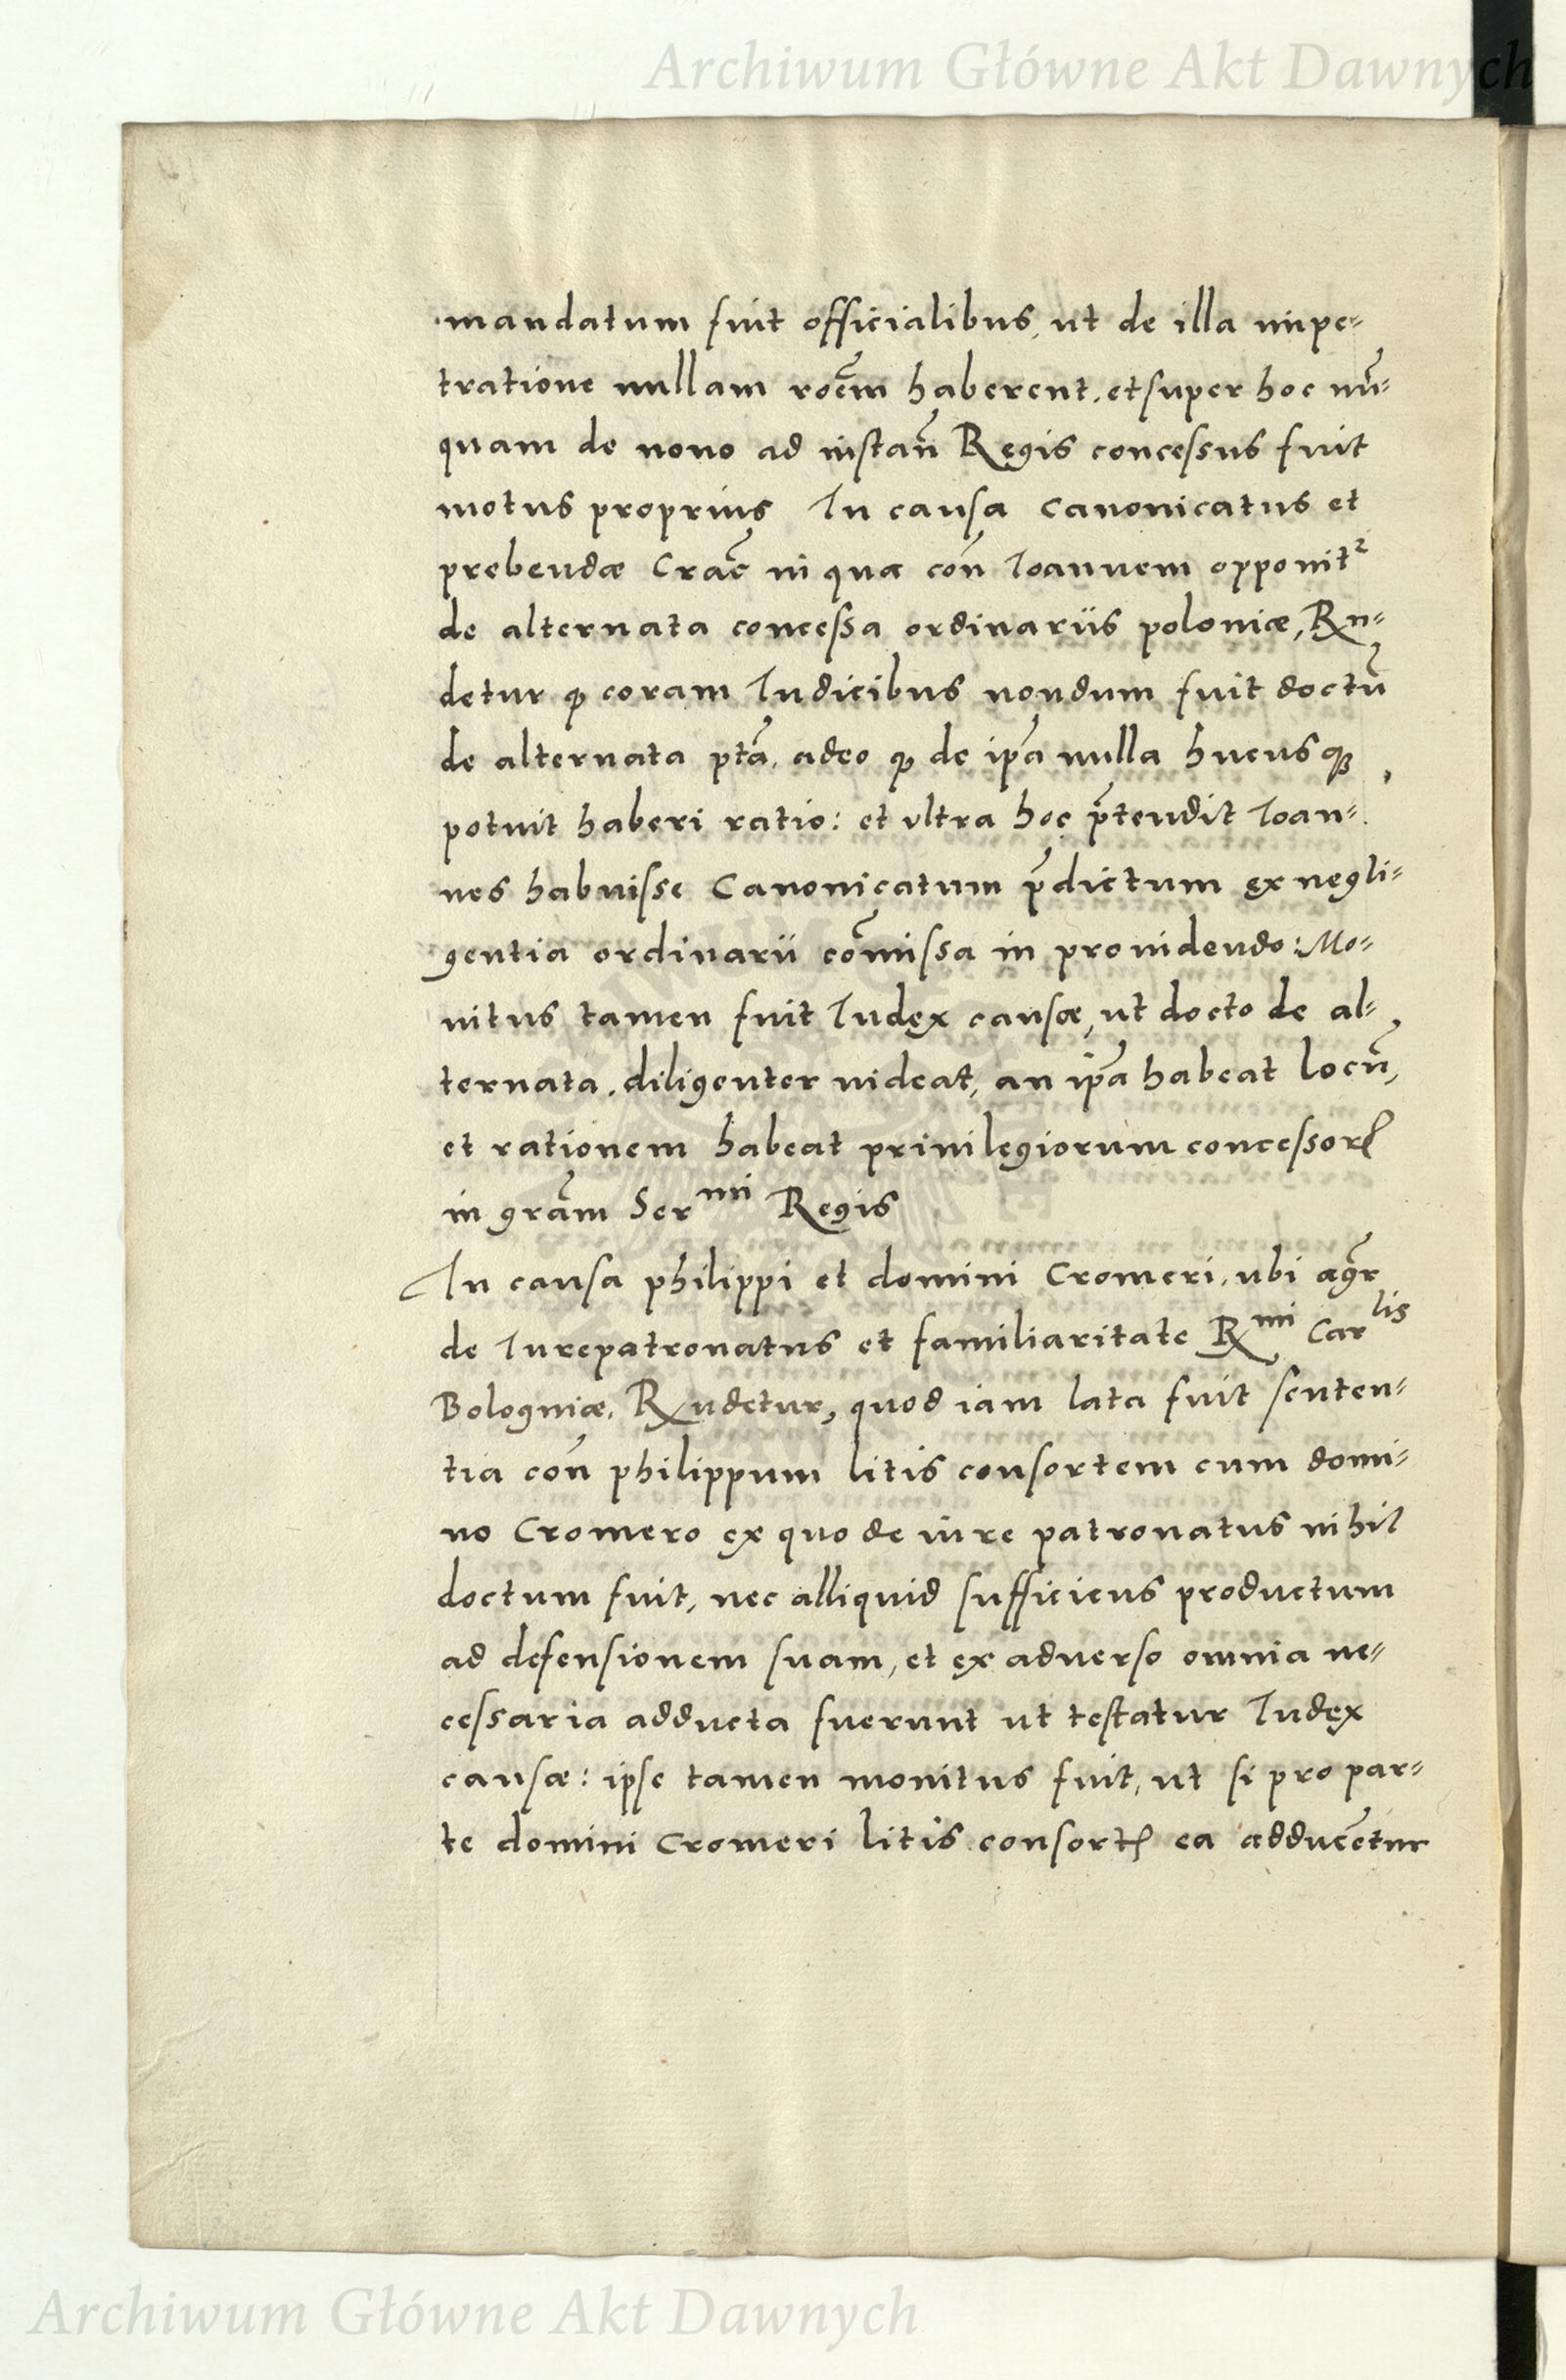 Archiwum Główne Akt Dawnych
mandatum fuit officialibus, ut de illa impe=
tratione nullam roēm haberent. et super hoc nū=
quam de nouo ad instan̄ Regis concessus fuit
motus proprius In causa Canonicatus et
prebendæ Crac̄ in qua con̄ Ioannem opponit²
de alternata concessa ordinariis poloniæ, Rn=
detur ꝙ coram Iudicibus nondum fuit doctū
de alternata ptā. adeo ꝙ de ipā nulla hucusqꝫ
potuit haberi ratio: et ultra hoc p̄tendit Ioan=
nes habuisse Canonicatum p̄dictum ex negli=
gentia ordinarii cōmissa in prouidendo: Mo=
nitus tamen fuit Iudex causæ, ut docto de al=
ternata. diligenter uideat, an ipā habeat locū,
et rationem habeat priuilegiorum concessorꝭ
in grām Serᵐⁱ Regis
In causa philippi et domini Cromeri. ubi agr̄
de Iurepatronatus et familiaritate Rᵐⁱ Carˡⁱˢ
Bologniæ. Rndetur, quod iam lata fuit senten=
tia con̄ philippum litis consortem cum domi=
no Cromero ex quo de iure patronatus nihil
doctum fuit, nec alliquid sufficiens productum
ad defensionem suam, et ex aduerso omnia ne=
cessaria adducta fuerunt ut testatur Iudex
causæ: ipse tamen monitus fuit, ut si pro par=
te domini Cromeri litis consortꝭ ea adducētur
Archiwum Główne Akt Dawnych